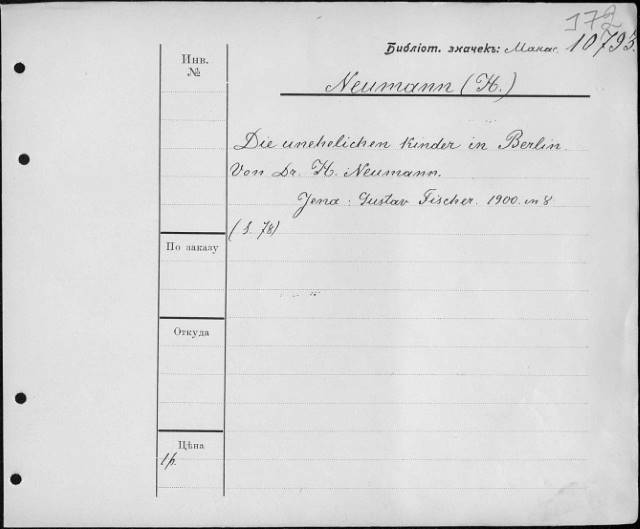 172
Библіот. значекъ: Манас. 10793.
Инв.
№
Neumann (H.)
Die unehelichen Kinder in Berlin.
Von Dr. H. Neumann.
Jena: Gustav Fischer. 1900. in 8
(S. 78)
По заказу
Откуда
Цѣна
1р.